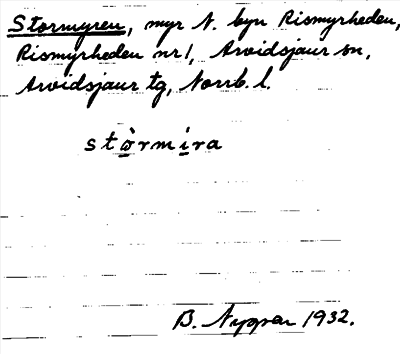 Stormyren, myr N. byn Rismyrheden,
Rismyrheden nr 1, Arvidsjaur sn,
Arvidsjaur tg, Norrb. l.
stòrmira
B. 1932.